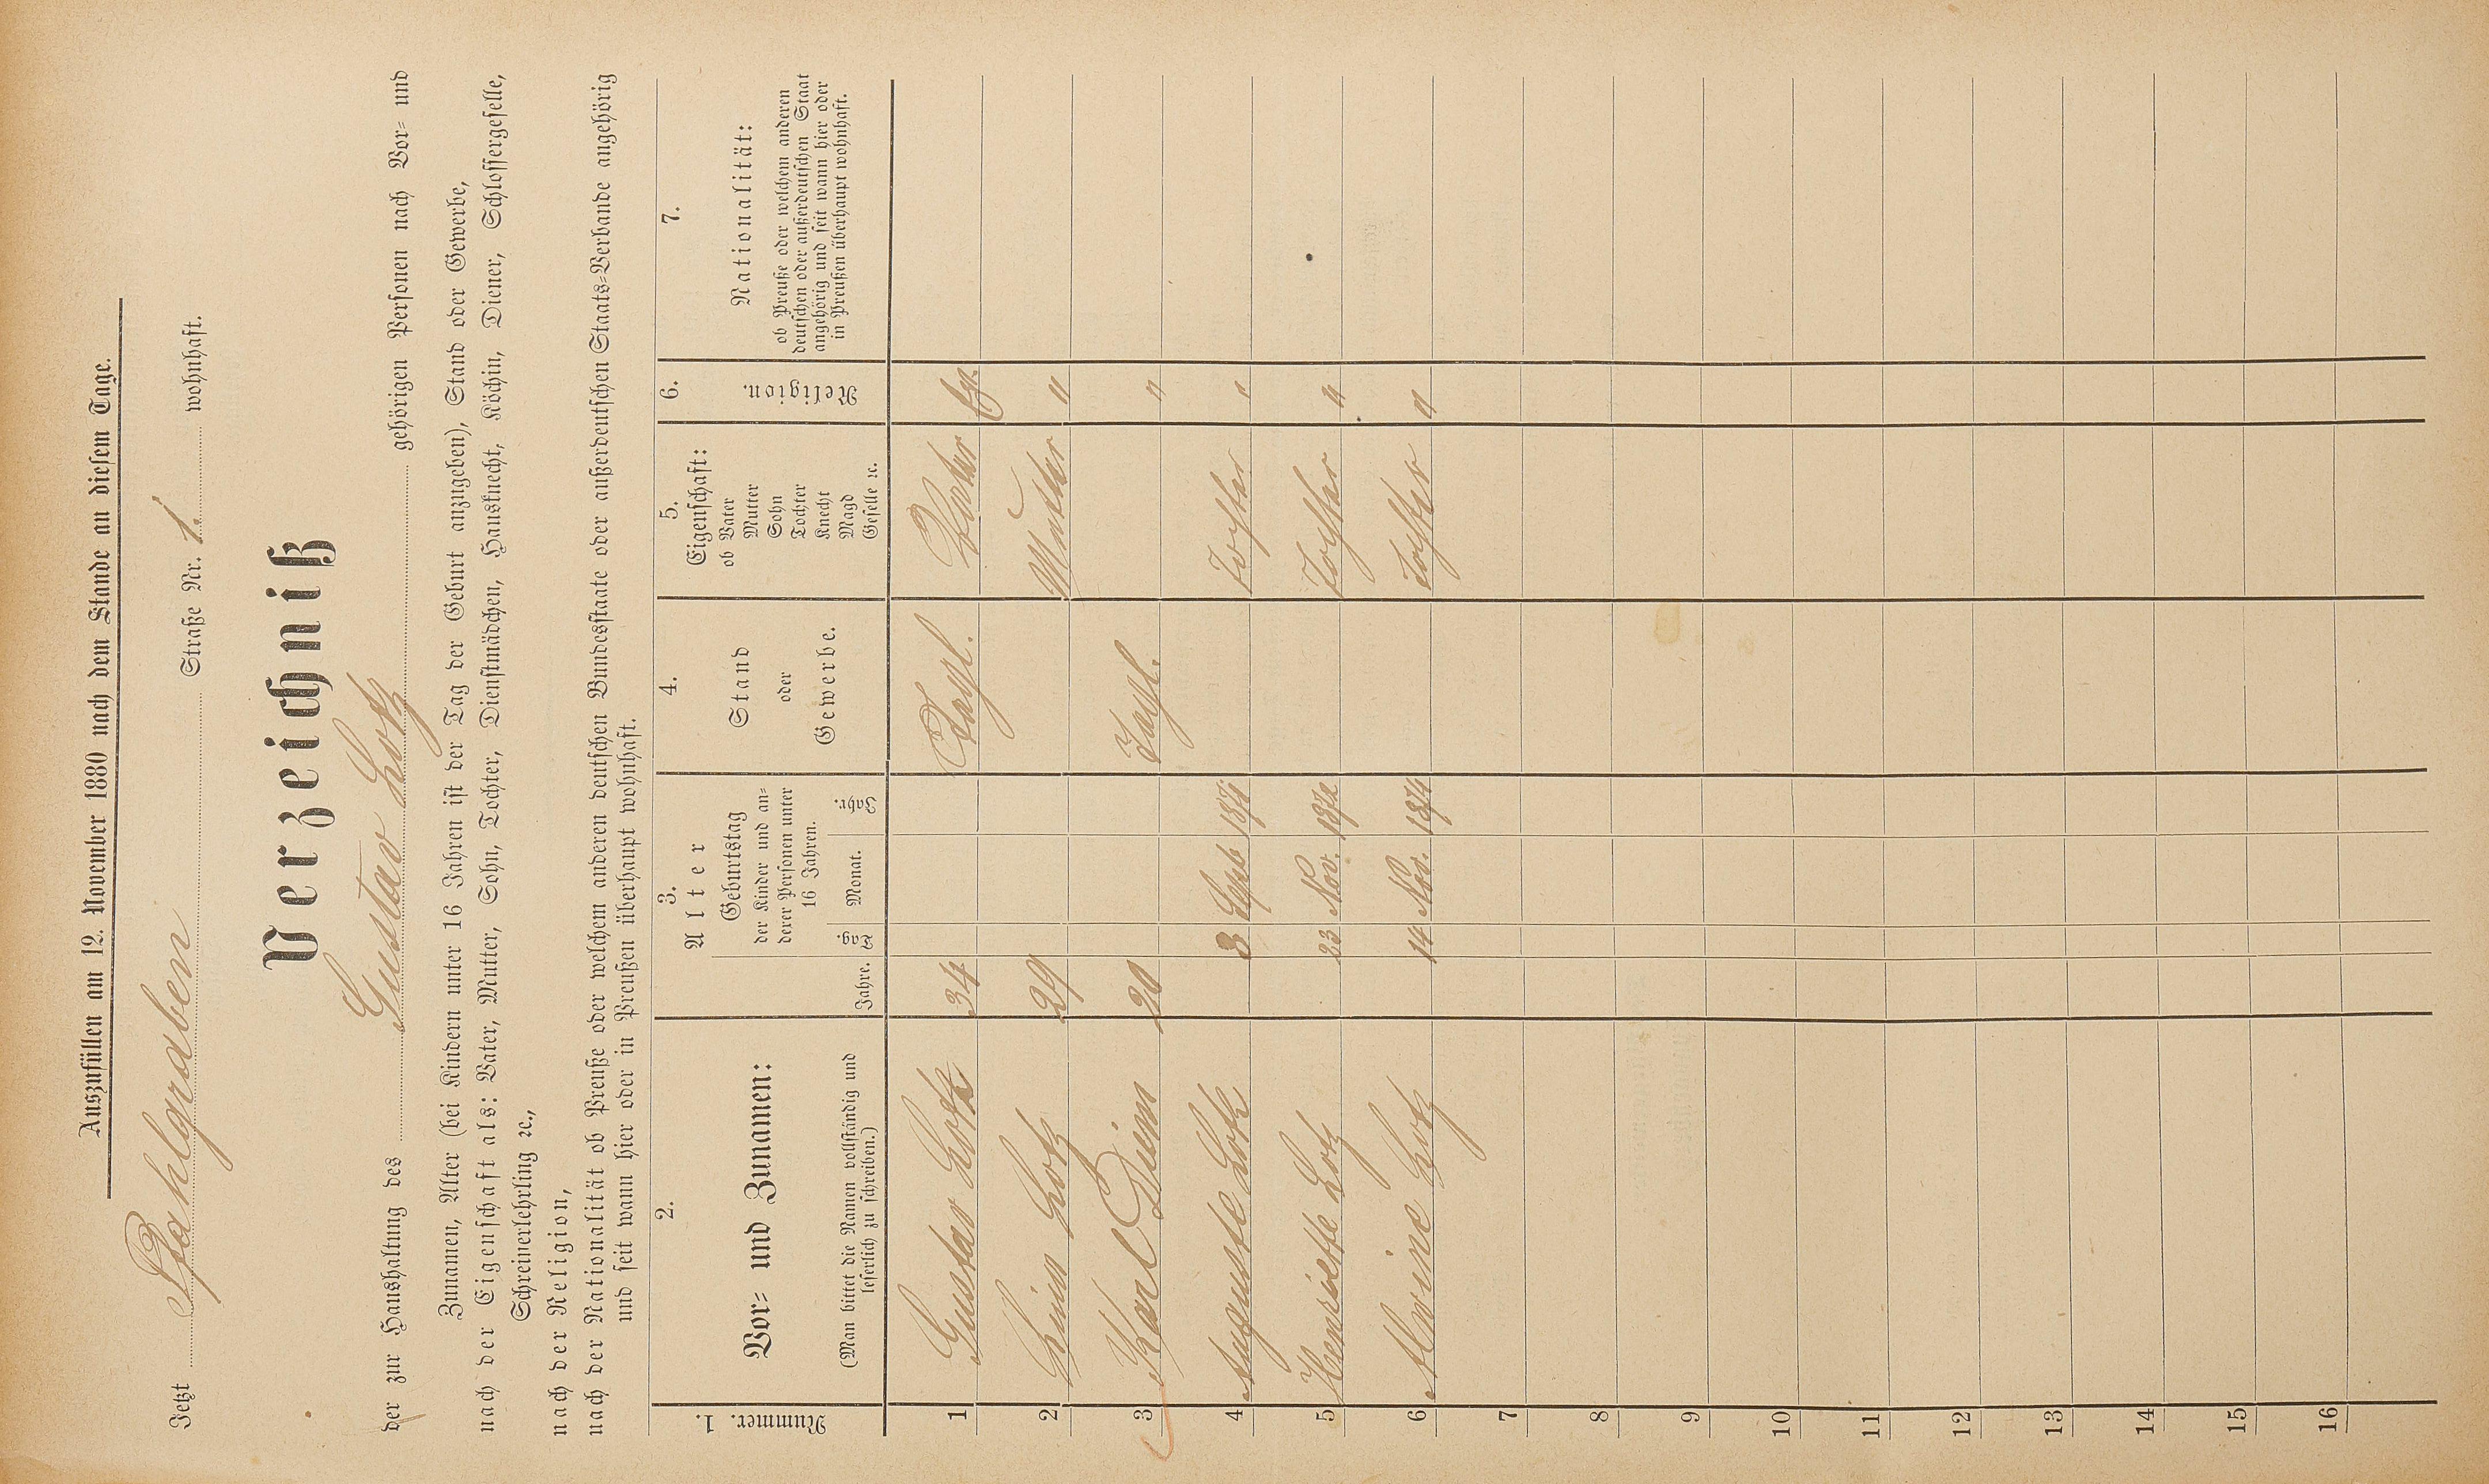 Auszufüllen am 12. November 1880 nach dem Stande an diesem Tage.
Jetzt Pfahlgraben Straße Nr. 1. wohnhaft.
Verzeichniß
der zur Haushaltung des Gustav Lotz gehörigen Personen nach Vor- und
Zunamen, Alter (bei Kindern unter 16 Jahren ist der Tag der Geburt anzugeben), Stand oder Gewerbe,
nach der Eigenschaft als: Vater, Mutter, Sohn, Tochter, Dienstmädchen, Hausknecht, Köchin, Diener, Schlossergeselle,
Schreinerlehrling ꝛc.,
nach der Religion,
nach der Nationalität ob Preuße oder welchem anderen deutschen Bundesstaate oder außerdeutschen Staats-Verbande angehörig
und seit wann hier oder in Preußen überhaupt wohnhaft.
1.
Nummer.
2.
Vor- und Zunamen:
(Man bittet die Namen vollständig und
leserlich zu schreiben.)
3.
Alter
Jahre.
Geburtstag
der Kinder und an-
derer Personen unter
16 Jahren.
Tag.
Monat.
Jahr.
4.
Stand
oder
Gewerbe.
5.
Eigenschaft:
ob Vater
Mutter
Sohn
Tochter
Knecht
Magd
Geselle ꝛc.
6.
Religion.
7.
Nationalität:
ob Preuße oder welchem anderen
deutschen oder außerdeutschen Staat
angehörig und seit wann hier oder
in Preußen überhaupt wohnhaft.
1 Gustav Lotz 34 Tagl. Vater Ev.
2 Lotz 29 Mutter "
3 Karl 20 Tagl. "
4 Auguste Lotz 3 Septb 1871 Tochter "
5 Henriette Lotz 23 Nov. 1872 Tochter "
6 Alwine Lotz 14 Nov. 1874 Tochter "
7
8
9
10
11
12
13
14
15
16